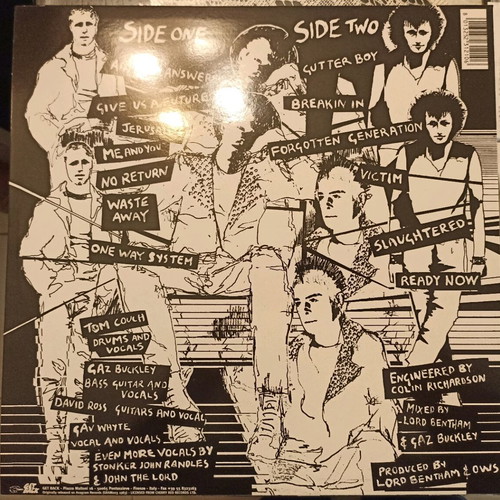 SIDE ONE
ANSWER
GIVE US A FUTURE
JERUSAL
ME AND YOU
NO RETURN
WASTE
AWAY
ONE WAY SYSTEM
SIDE TWO
GUTTER BOY
BREAKIN IN
FORGOTTEN GENERATION
VICTIM
SLAUGHTERED
READY NOW
TOM COUCH
DRUMS AND
VOCALS
GAZ BUCKLEY
BASS GUITAR AND
VOCALS
DAVID ROSS GUITARS AND VOCAL
GAV WHYTE
VOCAL AND VOCALS
EVEN MORE VOCALS BY
STONKER JOHN RANDLES
& JOHN THE LORD
ENGINEERED BY
COLIN RICHARDSON
MIXED BY
LORD BENTHAM
& GAZ BUCKLEY
PRODUCED BY
LORD BENTHAM & OWS